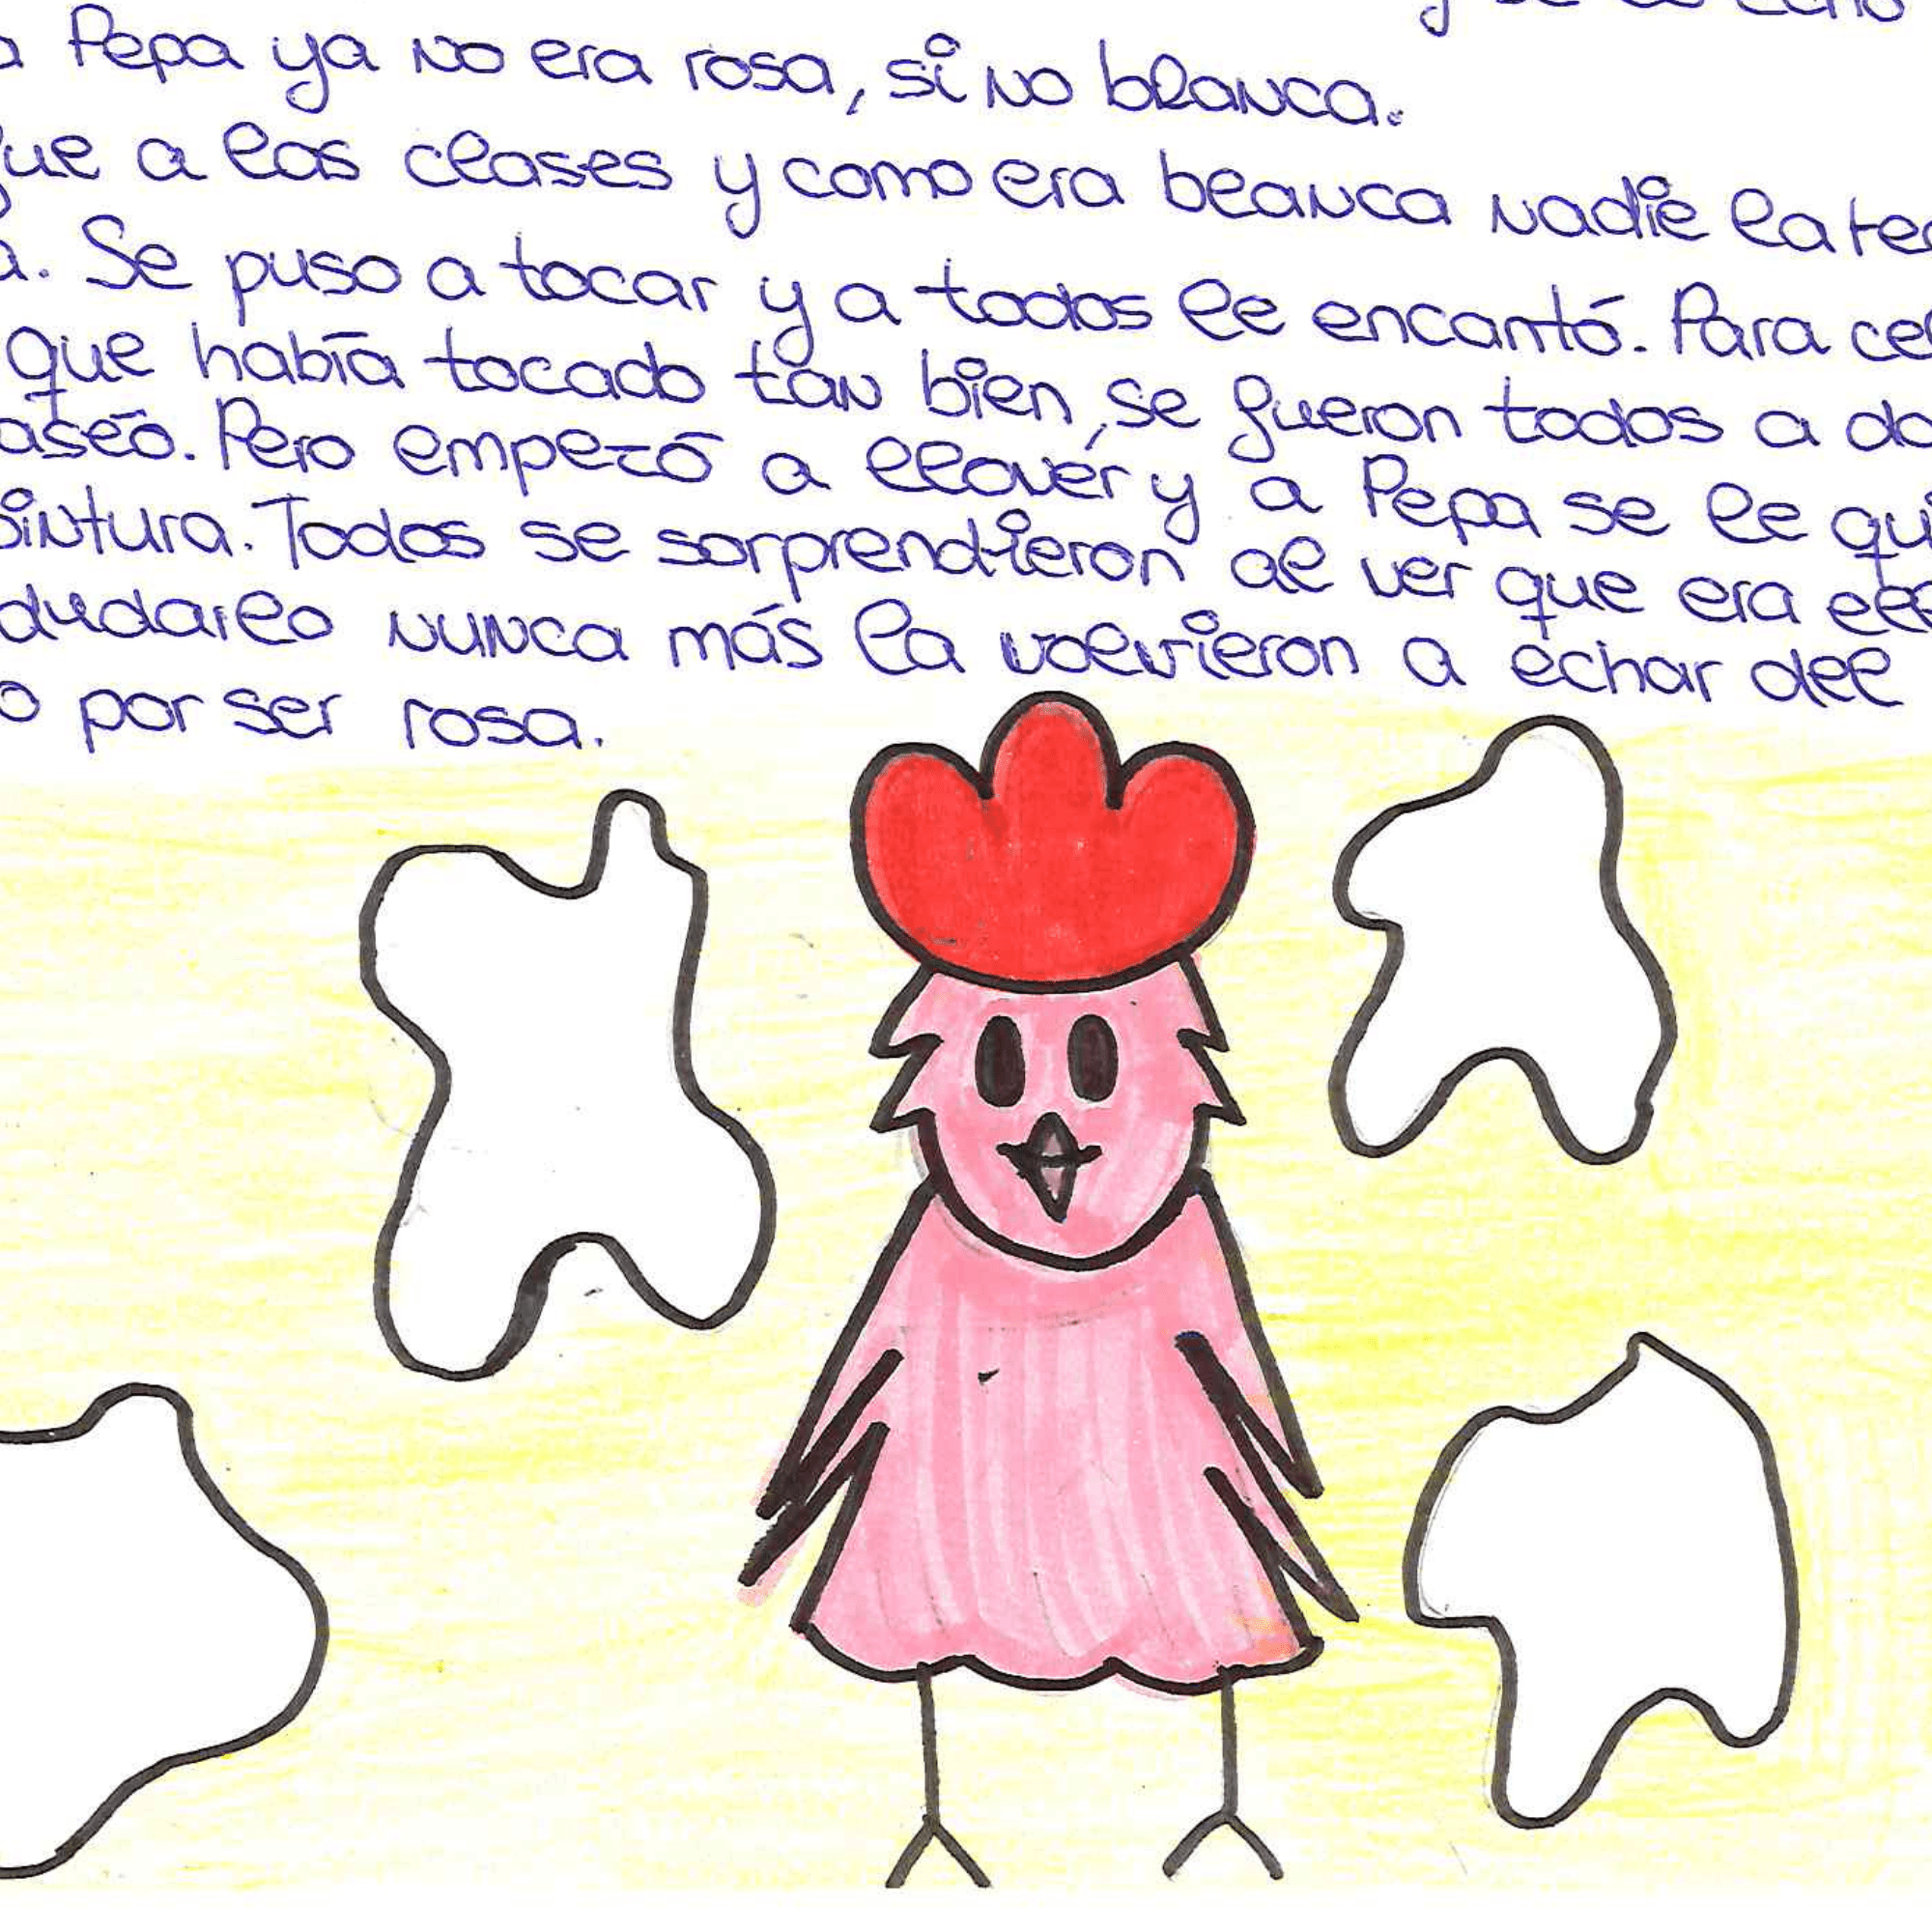 y se lo echó
a Pepa ya no era rosa, si no blanca.
que a las clases y como era blanca nadie la
a. Se puso a tocar y a todos le encantó. Para
que había tocado tan bien, se fueron todos a
aseo. Pero empezó a llover y a Pepa se le
pintura. Todos se sorprendieron al ver que era
dudarlo nunca más la volvieron a echar del
o por ser rosa.